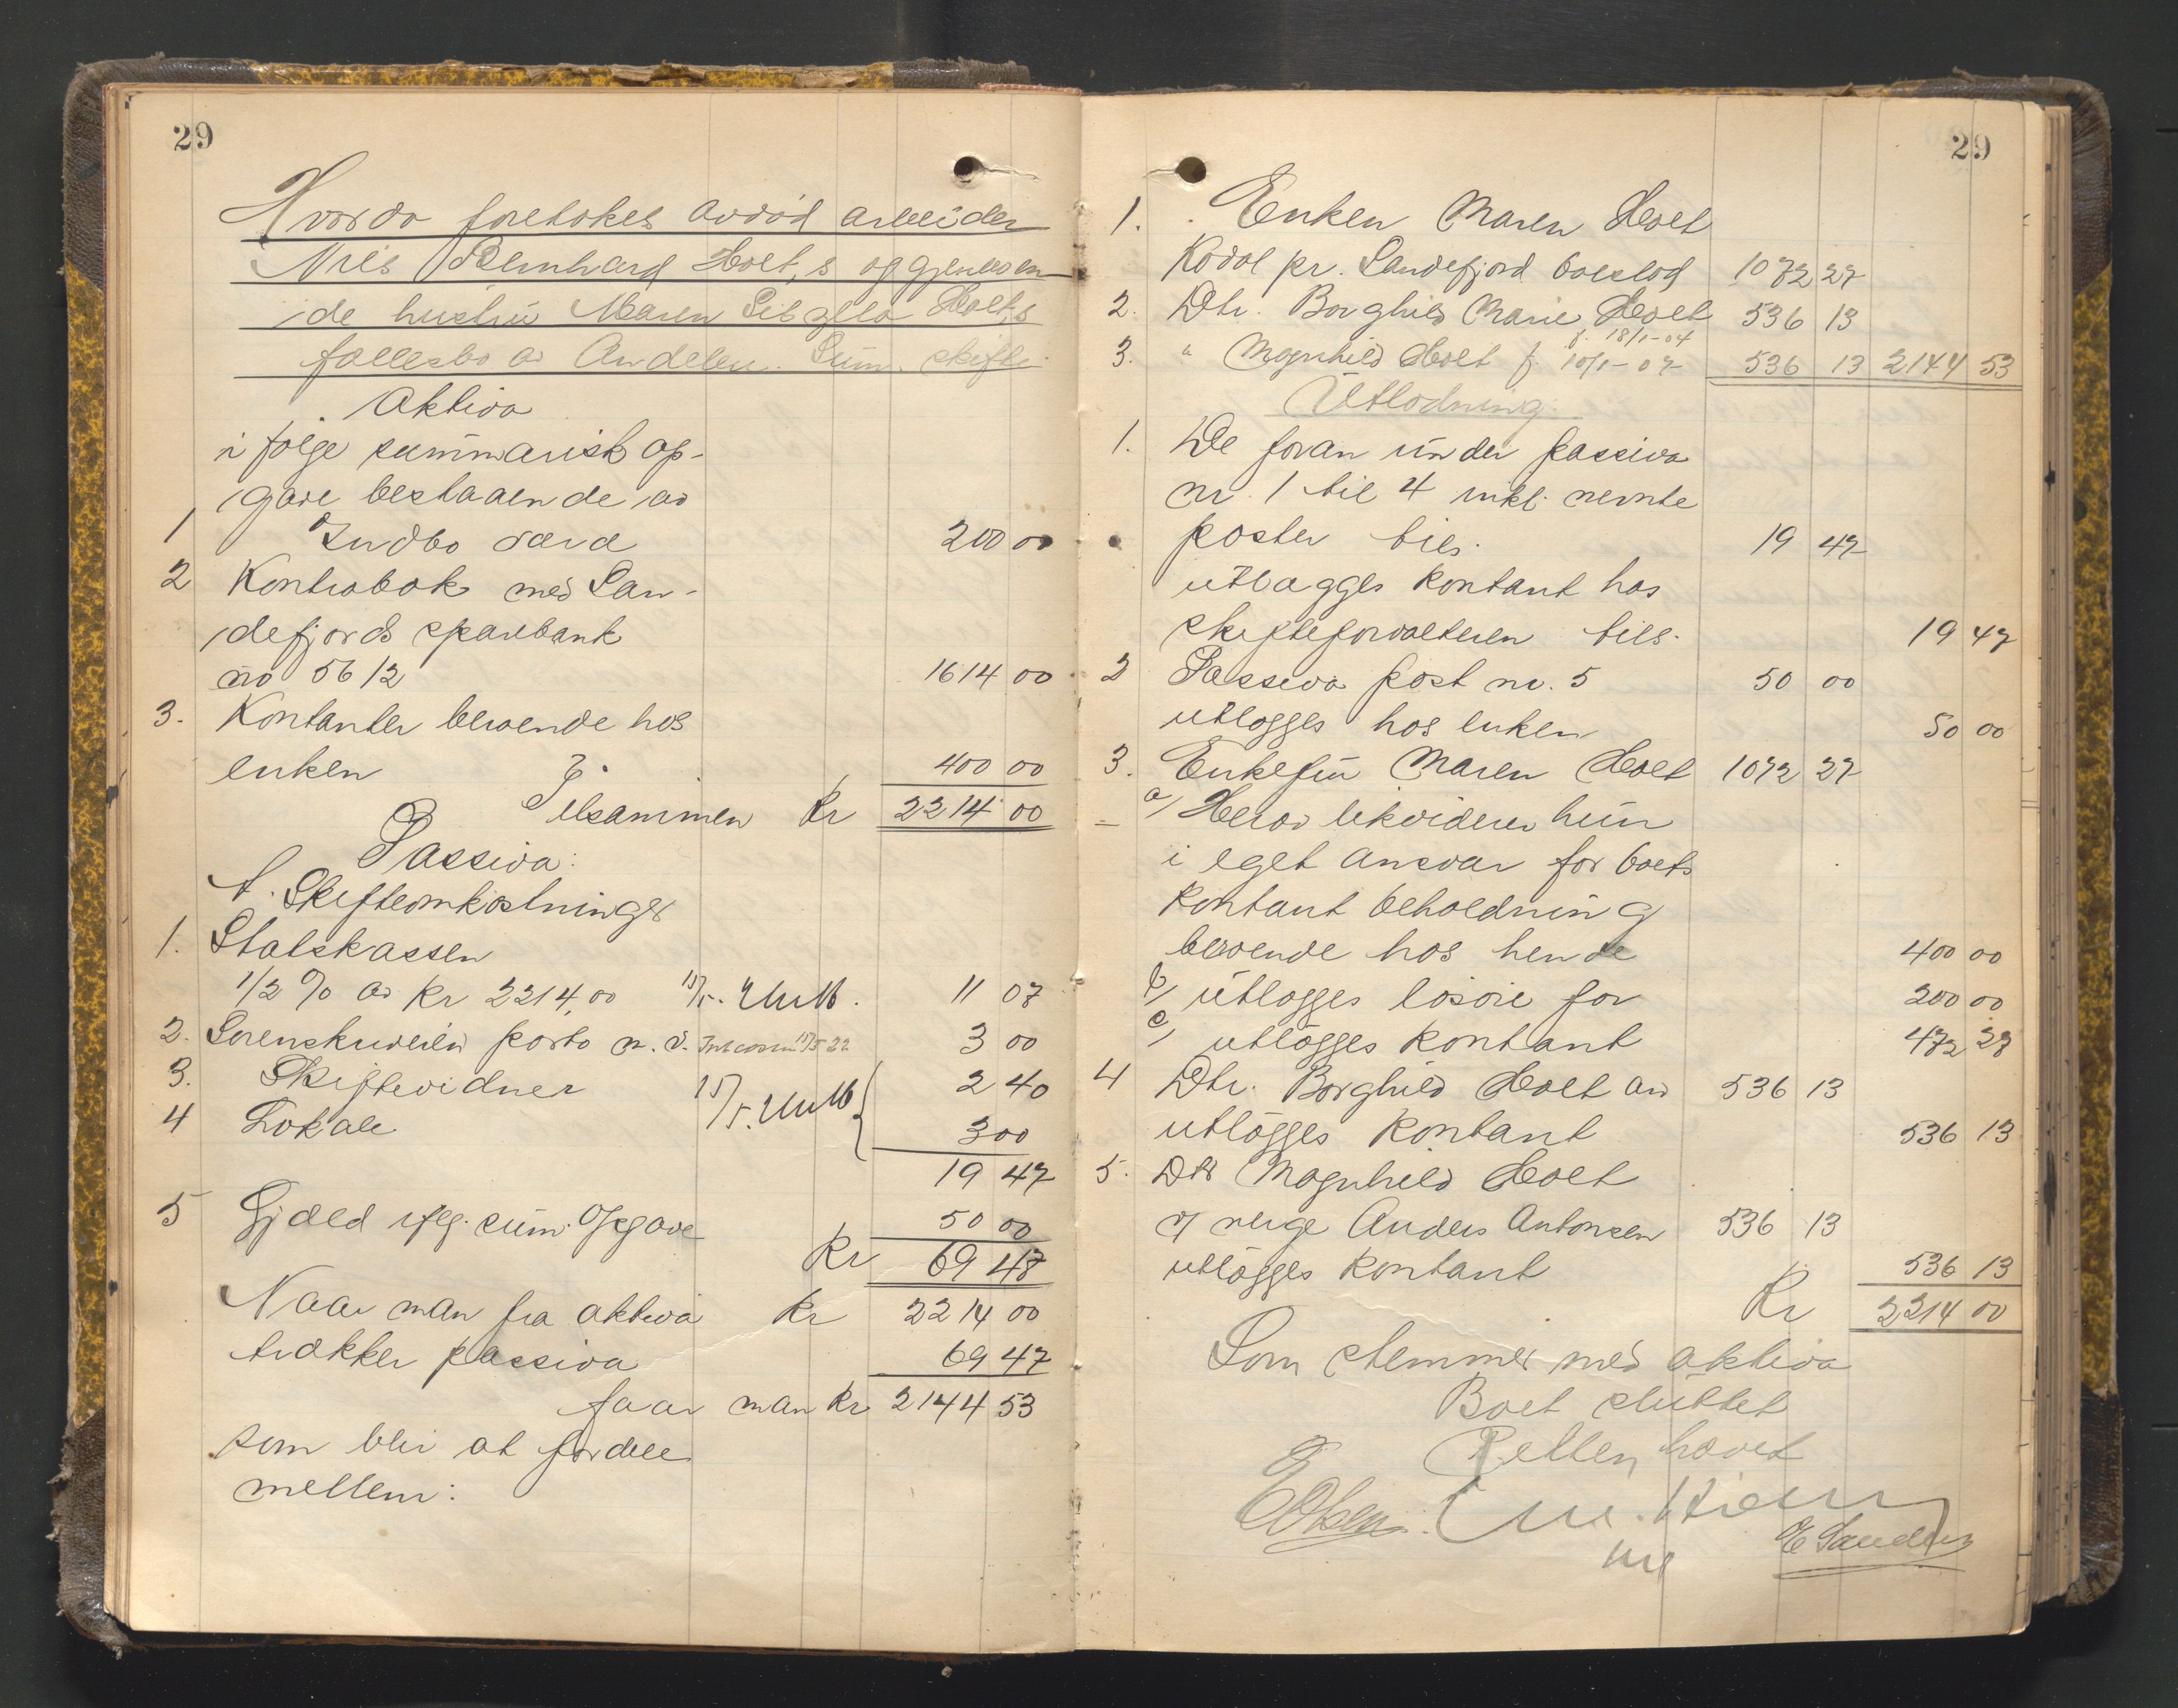 29
Hvorda foretokes avdød arbeider
Nils Bernhard Holt,s og gjenleven
de hustru Maren Sibylla Holt,s
fællesbo av Andebu. Sum. skifte.
Aktiva
i følge summarisk op-
gave bestaaende av
1 Indbo værd 200 00
2 Kontrabok med San-
defjords sparebank
no 5612 1614 00
3. Kontanter beroende hos
enken 400 00
Tilsammen Kr 2214 00
Passiva:
A. Skifteomkostninger
1. Statskassen
1/2 % av Kr 2214,00 15/5. 11 07
2. Sorenskriveren porto m. v. 15/5 22 3 00
3. Skiftevidner 15/5. 2 40
4 Lokale 3 00
19 47
5 Gjæld iflg. sum. Opgave 50 00
Kr 69 47
Naar man fra aktiva Kr 2214 00
trækker passiva 69 47
faar man Kr 2144 53
som blir at fordele
mellem:
29
1. Enken Maren Holt
Kodal pr. Sandefjord boeslod 1072 27
2. Dtr. Borghild Marie Holt 536 13
f. 18/1-04
3. " Magnhild Holt f. 10/1-07 536 13 2144 53
Utlodning:
1. De foran under passiva
nr. 1 til 4 inkl. nevnte
poster tils. 19 47
utlægges kontant hos
skifteforvalteren tils. 19 47
2 Passiva post nr. 5 50 00
utlægges hos enken 50 00
3. Enkefru Maren Holt 1072 27
a/ Herav likviderer hun
i eget ansvar for boets
kontant beholdning
beroende hos hende 400 00
b/ utlægges løsøre for 200 00
c/ utlægges kontant 472 27
4 Dtr. Borghild Holt av 536 13
utlægges kontant 536 13
5. Dtr Magnhild Holt
v/ verge Anders Antonsen 536 13
utlægges kontant 536 13
Kr 2214 00
Som stemmer med aktiva
Boet sluttet
Retten hævet
EOlsen.